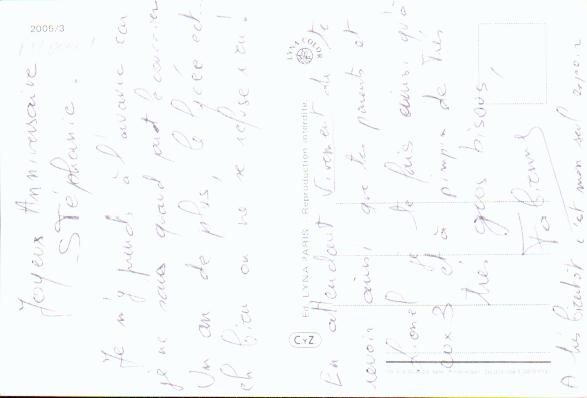 2005/3
Joyeux Anniversaire
Stéphanie.
Je m'y prends à l'avance car
je ne sais quand part le courrier
Un an de plus, le lycée est
eh bien on ne se refuse rien!
LYNA PARIS
Ed. LYNA PARIS - Reproduction interdite
CyZ
En attendant vivement de te
revoir ainsi que tes parents et
Lionel je te fais ainsi qu'à
eux 3 et à de très
très gros bisous,
Fabienne
A très bientôt c'est mon